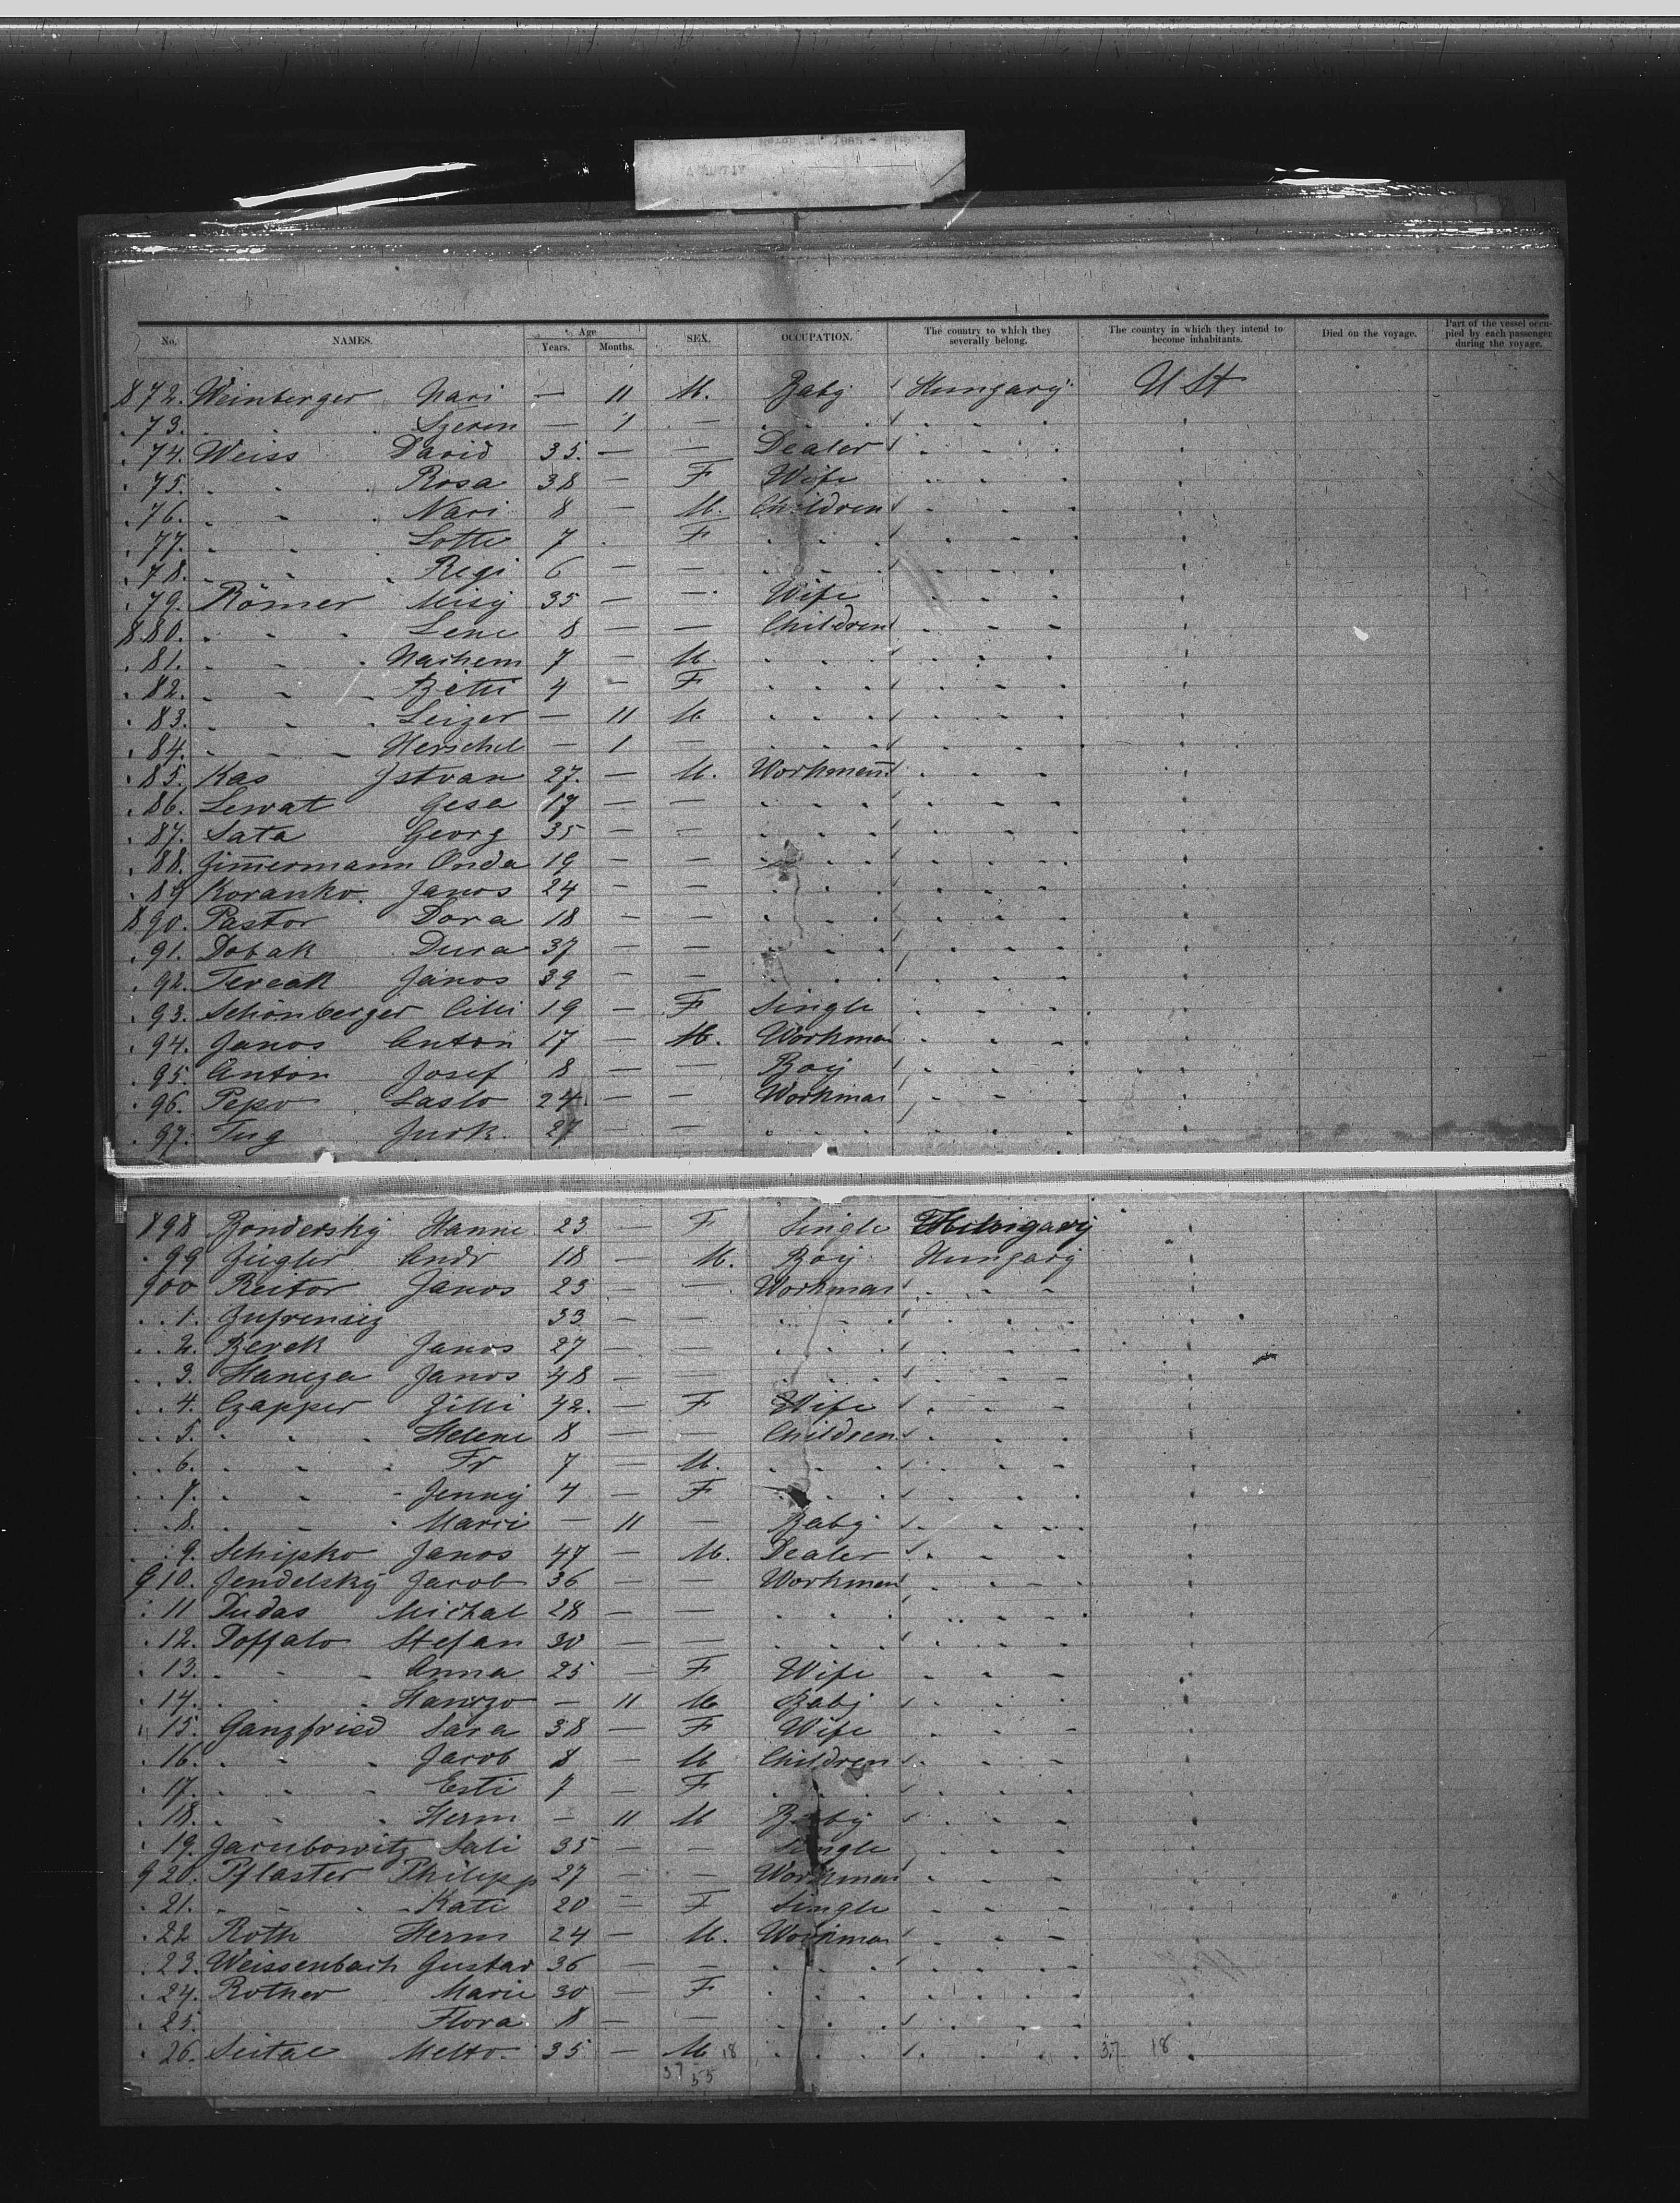 No. NAMES. Age Years. Months. SEX. OCCUPATION. The country to which they severally belong. The country in which they intend to become inhabitants. Died on the voyage. Part of the vessel occupied by each passenger during the voyage.
872. Weinberger Nari — 11 M. Baby Hungary U St
. 73. . . . Szeren — 1 —
. 74. Weiss David 35. — — Dealer
. 75. . . . Rosa 38 — F Wife
. 76. . . . Nari 8 — M. Children
. 77. . . . Lotte 7 . F
. 78. . . . Regi 6 — —
. 79. Römer Misy 35 — — Wife
880. . . . Lene 8 — — Children
. 81. . . . Nachem 7 — M
. 82. . . . Betti 4 — F
. 83. . . . Leizer — 11 M
. 84. . . . Herschel — 1 —
. 85. Kas Istvan 27. — M. Workmen
. 86. Lewat Gesa 17 — —
. 87. Sata Georg 35 — —
. 88. Zimermann Onda 19 — —
. 89 Koranko. Janos 24 — —
890. Pastor Dora 18 — —
. 91. Dobak Dura 37 — —
. 92. Tereak Janos 39 — —
. 93. Schönberger Cilli 19 — F Single
. 94. Janos Anton 17 — M. Workman
. 95. Anton Josef 8 — — Boy
. 96. Pepo Laslo 24. — — Workman
. 97. Tug Jurk. 27 — —
898 Bondersky Hanne 23 — F Single Hungary
. 99 Ziegler Andr 18 — M. Boy Hungary
900 Reitor Janos 23 — — Workman
. . 1. 33 — —
. . 2. Berek Janos 27 — —
. . 3. Hancza Janos 48 — —
. . 4. Czapper Zilli 42. — F Wife
. . 5. . . . Helene 8 — — Children
. . 6. . . . Fr 7 — M.
. . 7. . . . Jenny 4 — F
. . 8. . . . Marie — 11 — Baby
. . 9. Schipko Janos 47 — M. Dealer
910. Jendelsky Jacob 36 — — Workmen
. 11 Dudas Michal 28 — —
. 12. Poffalo Stefan 30 — —
. 13. . . . Anna 25 — F Wife
. 14. . . . — 11 M Baby
. 15. Ganzfried Sara 38 — F Wife
. 16. . . . Jacob 8 — M Children
. 17. . . . Esti 7 — F
. 18. . . . Herm — 11 M Baby
. 19. Jacubowitz Sali 35 — — Single
920. Pflaster Philipp 27 — — Workman
. 21. . . . Kati 20 — F Single
. 22 Roth Herm 24 — M. Workman
. 23. Weissenbach Gustav 36 — —
. 24. Rother Marie 30 — F
. 25. Flora 8 — —
. 26. Seitae Melto. 35 — M 18 37 18
37 55